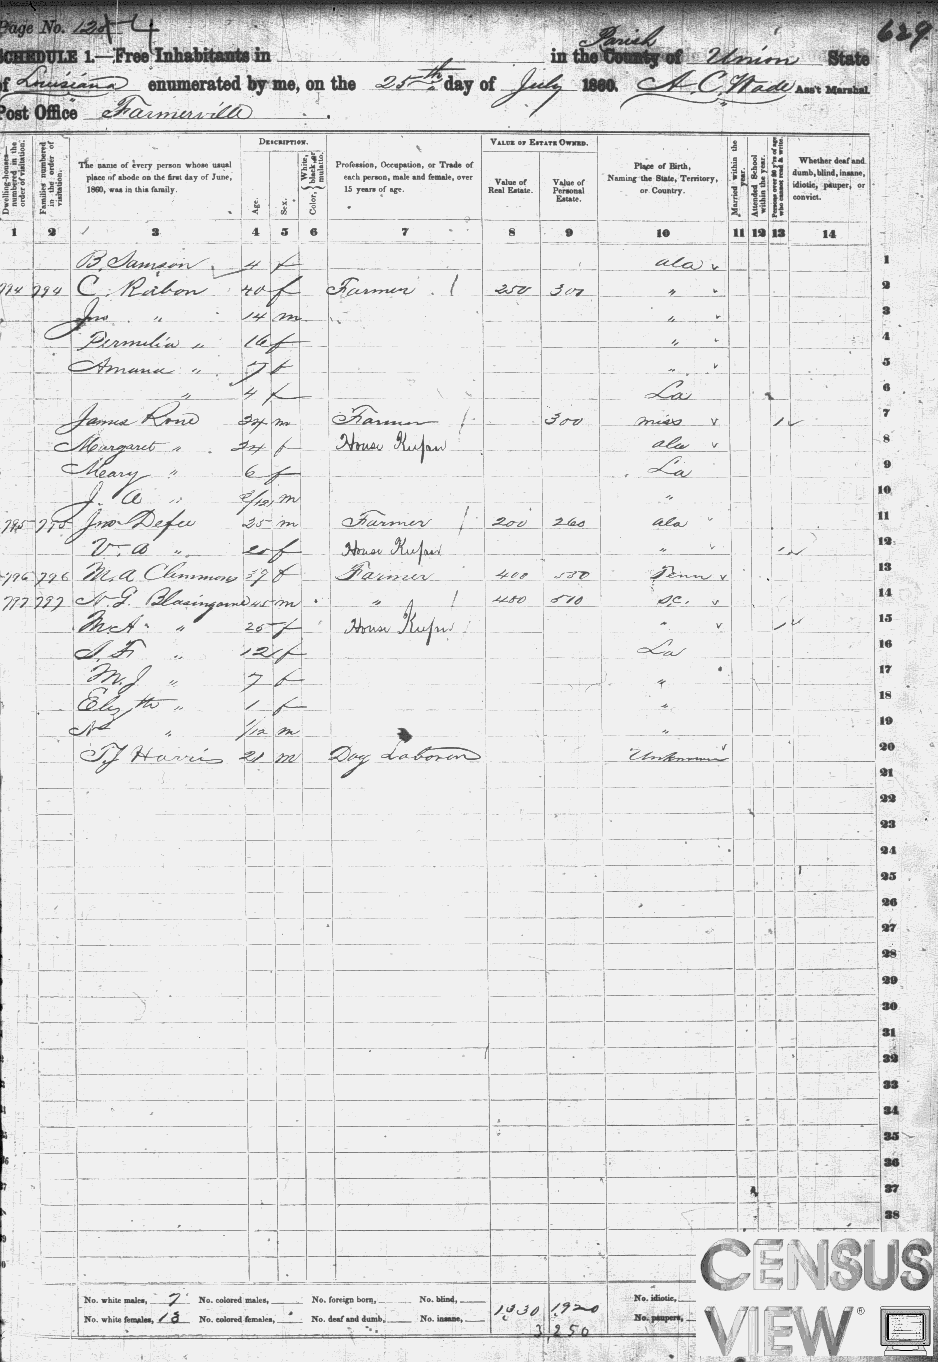 Page No. 124
629
SCHEDULE 1.—Free Inhabitants in in the County of Parish Union State
of Louisiana enumerated by me, on the 25th day of July 1860. A. C. Wade Ass't Marshal.
Post Office Farmerville
Dwelling-houses numbered in the order of visitation.
Families numbered in the order of visitation.
The name of every person whose usual place of abode on the first day of June, 1860, was in this family.
DESCRIPTION.
Age.
Sex.
Color, White, black, or mulatto.
Profession, Occupation, or Trade of each person, male and female, over 15 years of age.
VALUE OF ESTATE OWNED.
Value of Real Estate.
Value of Personal Estate.
Place of Birth, Naming the State, Territory, or Country.
Married within the year.
Attended School within the year.
Persons over 20 y'rs of age who cannot read & write.
Whether deaf and dumb, blind, insane, idiotic, pauper, or convict.
1 2 3 4 5 6 7 8 9 10 11 12 13 14
B. Samson 4 f ala 1
794 794 C. Rabon 40 f Farmer 1 250 300 " 2
Jno " 14 m " 3
Permelia " 16 f " 4
Amana " 7 f " 5
" 4 f La 6
James Rone 34 m Farmer 1 300 miss 1 7
Margaret " 24 f House Keeper ala 8
Meary " 6 f La 9
J. A " 3/12 m " 10
795 795 Jno Defee 25 m Farmer 1 200 260 ala 11
V. A " 20 f House Keeper " 1 12
796 796 M. A Clemmons 37 f Farmer 400 550 Tenn 13
797 797 N. G. Blasingame 45 m " 1 480 510 S.C. 14
M. A " 25 f House Keeper " 1 15
S. F. " 12 f La 16
M. J " 7 f " 17
Elizth " 1 f " 18
" 1/12 m " 19
T J Harris 21 m Day Laborer Unknown 20
21
22
23
24
25
26
27
28
29
30
31
32
33
34
35
36
37
38
No. white males, 7 No. colored males, No. foreign born, No. blind, 1330 1920 No. idiotic,
No. white females, 13 No. colored females, No. deaf and dumb, No. insane, 3,250 No. paupers,
CENSUS
VIEW®